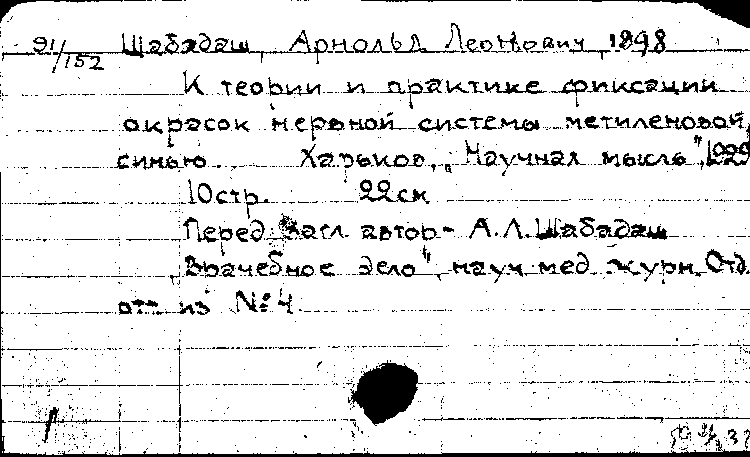 91/152 Шабадаш, Арнольд Леонович, 1898
К теории и практике фиксации
окрасок нервной системы метиленовой
синью. Харьков, "Научная мысль", 1929
10 стр. 22 см
Перед загл. автор - А.Л. Шабадаш
"Врачебное дело", науч. мед. журн. Отд.
отт. из № 4